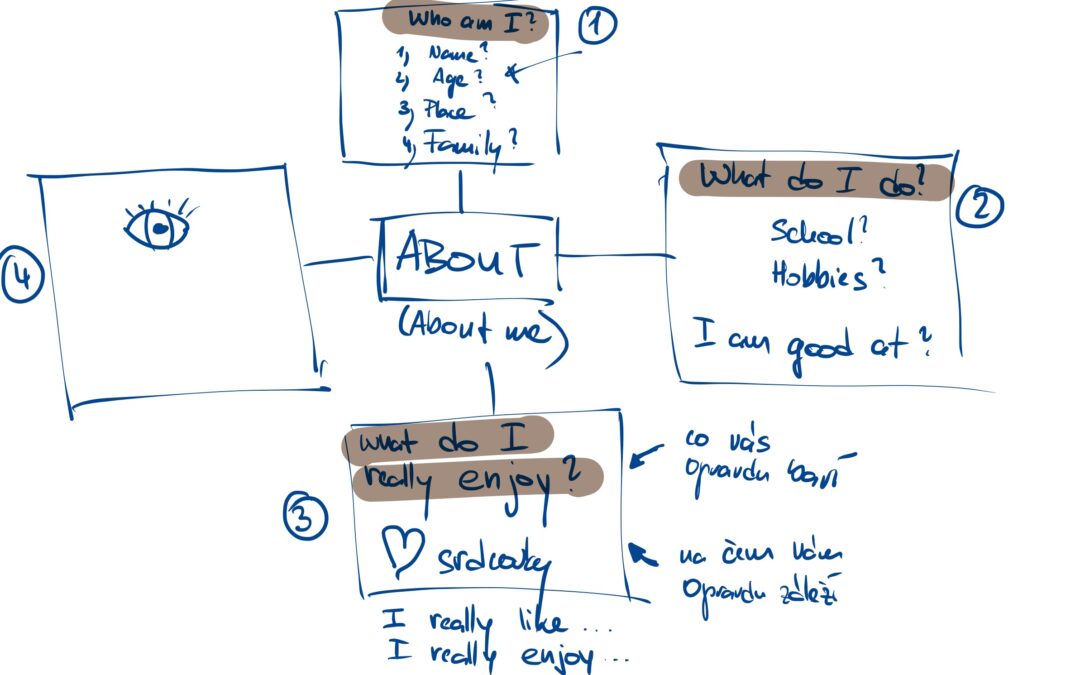 Who am I?
1, Name?
2, Age?
3, Place?
4, Family?
1
What do I do?
School?
Hobbies?
I am good at?
2
ABOUT
(About me)
What do I
really enjoy?
srdcovky
3
I really like ...
I really enjoy ...
co vás
opravdu baví
na čem vám
opravdu záleží
4